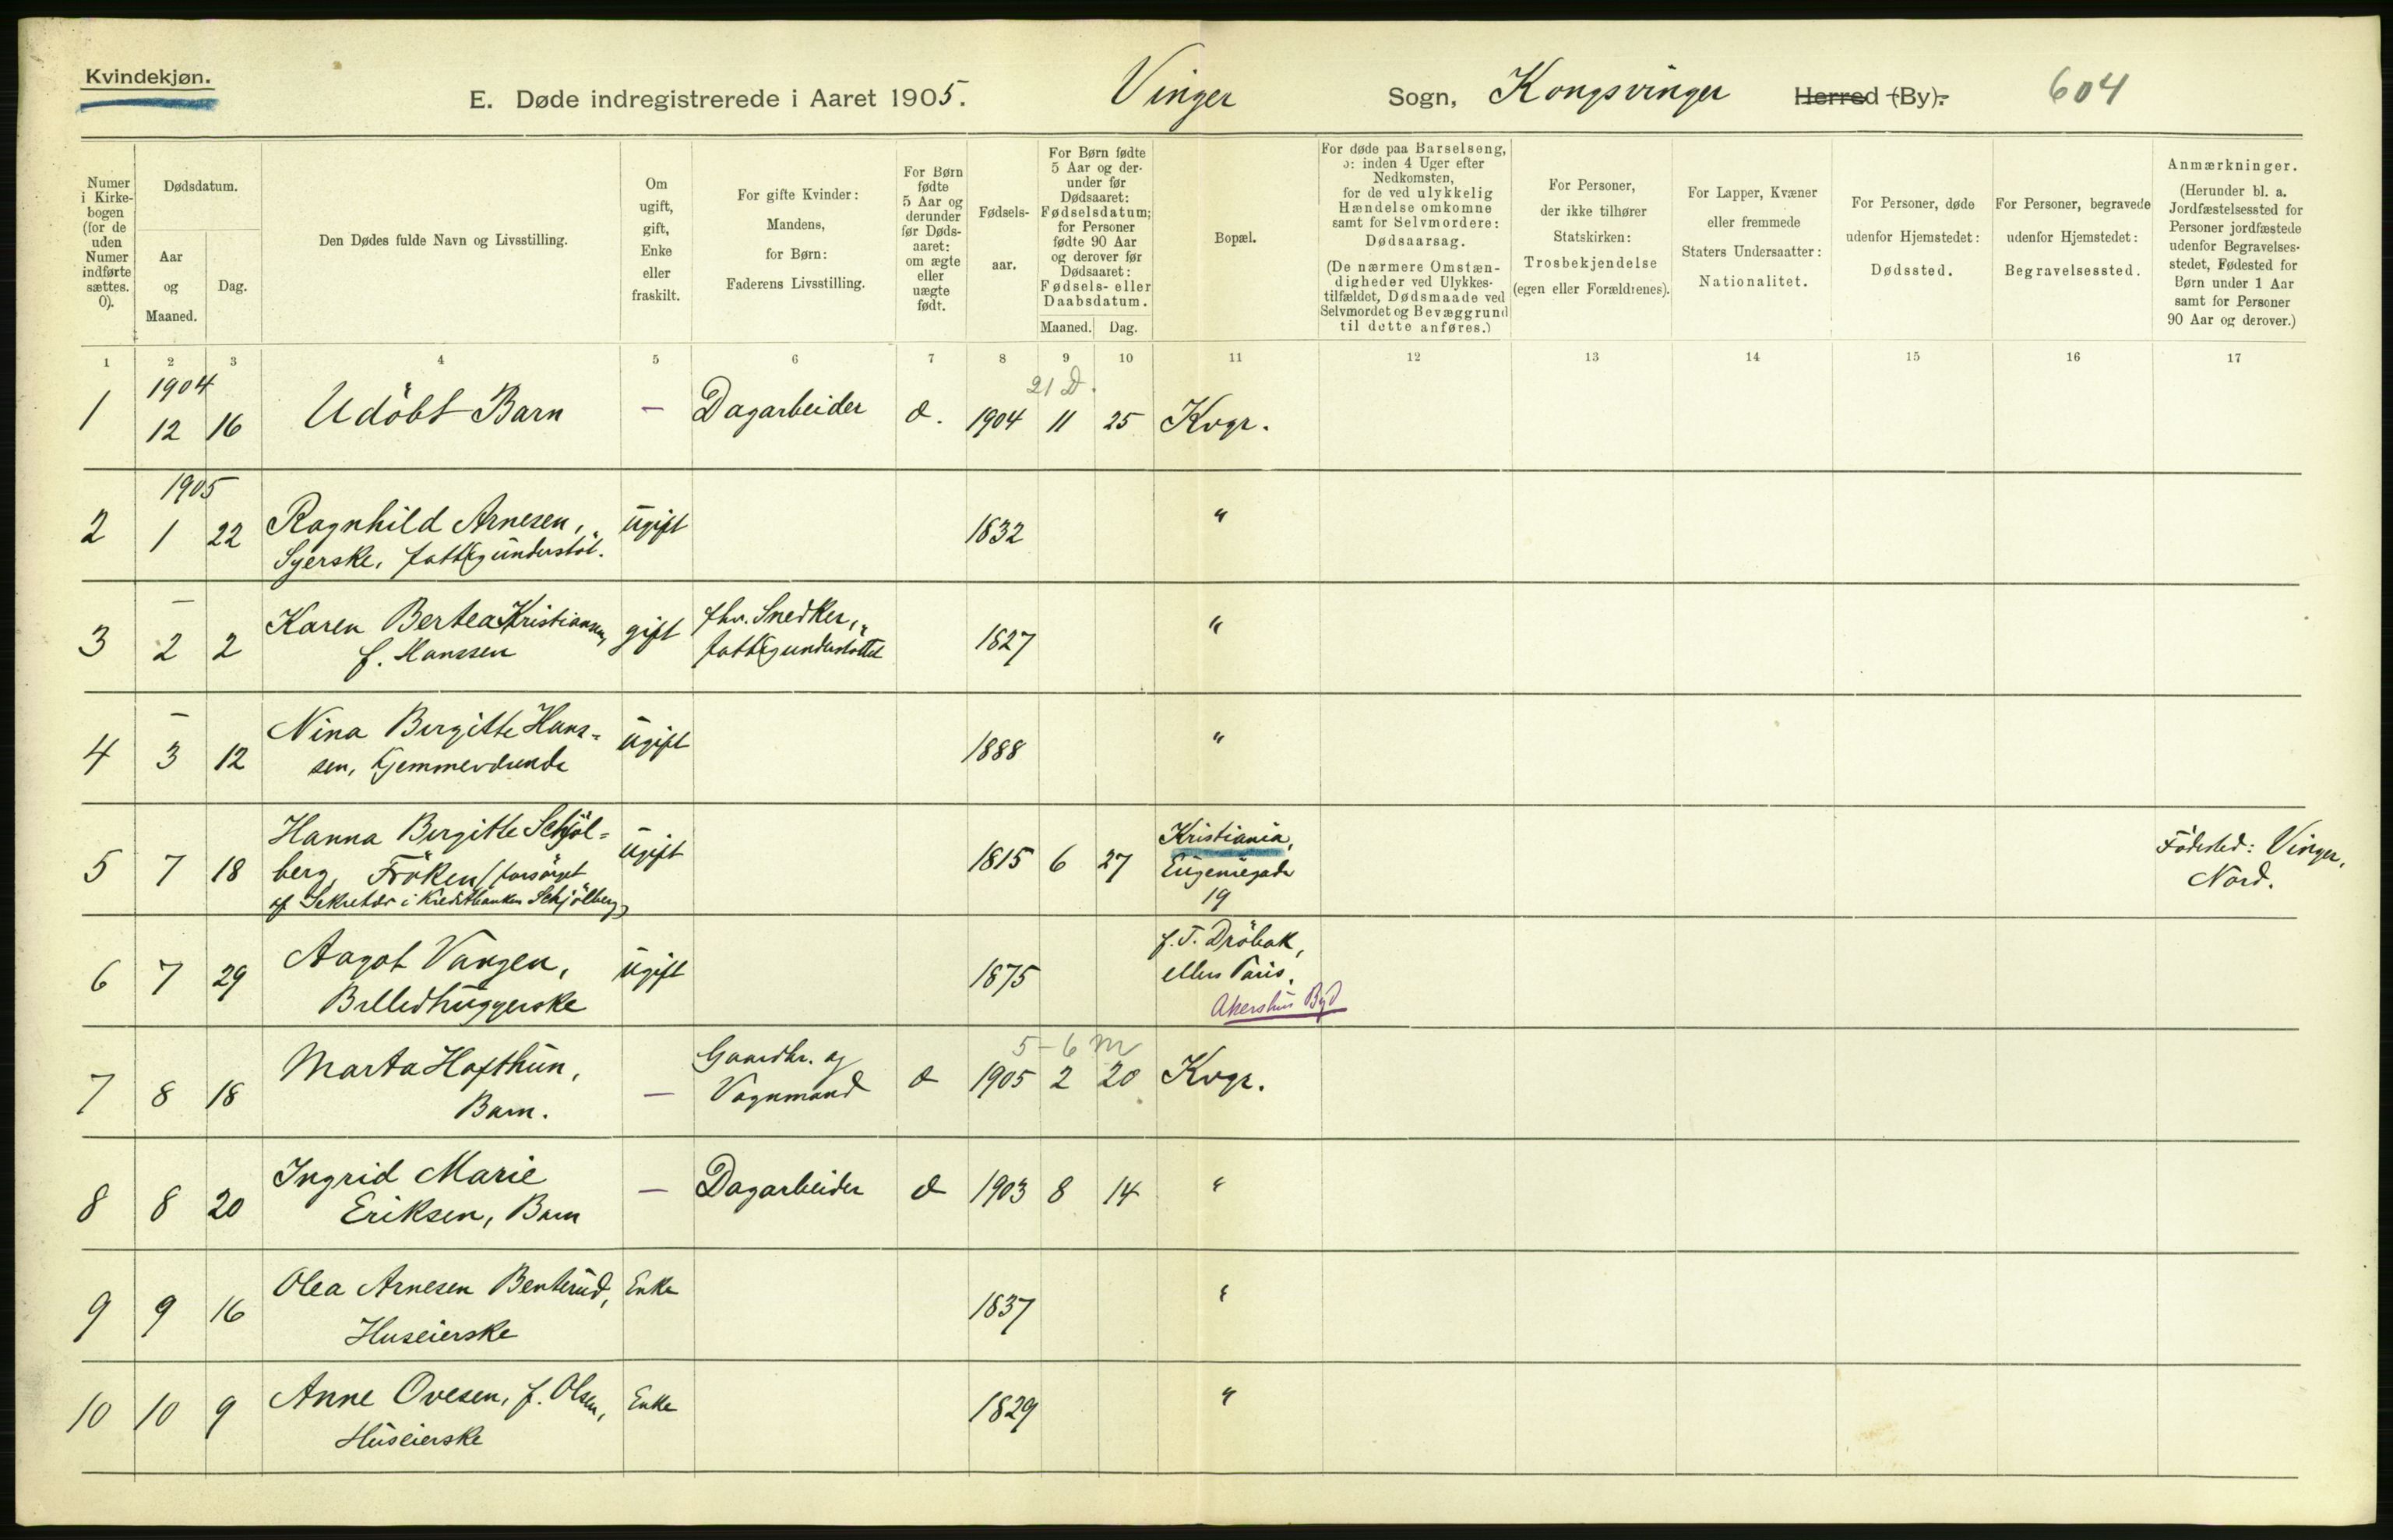 Kvindekjøn.
E. Døde indregistrerede i Aaret 1905. Vinger Sogn, Kongsvinger Herred (By). 604
Numer i Kirkebogen (for de uden Numer indførte sættes. 0).
Dødsdatum.
Aar og Maaned.
Dag.
Den Dødes fulde Navn og Livsstilling.
Om ugift, gift, Enke eller fraskilt.
For gifte Kvinder: Mandens, for Børn: Faderens Livsstilling.
For Børn fødte 5 Aar og derunder før Dødsaaret: om ægte eller uægte født.
Fødselsaar.
For Børn fødte 5 Aar og derunder før Dødsaaret: Fødselsdatum; for Personer fødte 90 Aar og derover før Dødsaaret: Fødsels- eller Daabsdatum.
Maaned. Dag.
Bopæl.
For døde paa Barselseng, ɔ: inden 4 Uger efter Nedkomsten, for de ved ulykkelig Hændelse omkomne samt for Selvmordere: Dødsaarsag.
(De nærmere Omstændigheder ved Ulykkestilfældet, Dødsmaade ved Selvmordet og Bevæggrund til dette anføres.)
For Personer, der ikke tilhører Statskirken: Trosbekjendelse (egen eller Forældrenes).
For Lapper, Kvæner eller fremmede Staters Undersaatter: Nationalitet.
For Personer, døde udenfor Hjemstedet: Dødssted.
For Personer, begravede udenfor Hjemstedet: Begravelsessted.
Anmærkninger.
(Herunder bl. a. Jordfæstelsessted for Personer jordfæstede udenfor Begravelsesstedet, Fødested for Børn under 1 Aar samt for Personer 90 Aar og derover.)
1 2 3 4 5 6 7 8 9 10 11 12 13 14 15 16 17
1904 21 D.
1 12 16 Udöbt Barn — Dagarbeider d. 1904 11 25 Kvgr.
1905
2 1 22 Ragnhild Arnesen, ugift 1832 "
Syerske, fattigunderstöt.
—
3 2 2 Karen Bertea Kristiansen, gift fhv. Snedker, 1827 "
f. Hanssen fattigunderstöttet
—
4 3 12 Nina Birgitte Hans- ugift 1888 "
sen, hjemmeværende
5 7 18 Hanna Birgitte Schjöl- ugift 1815 6 27 Kristiania, Födested: Vinger,
berg, Fröken (forsörget Eugeniegade Nord.
af Sekretær i Kreditbanken Schjölberg) 19
6 7 29 Aagot Vangen, ugift 1875 f. T. Dröbak,
Billedhuggerske ellers Paris.
Akershus Byd
5-6 m
7 8 18 Marta Hofthun, — Gaardbr. og d 1905 2 20 Kvgr.
Barn. Vognmand
8 8 20 Ingrid Marie — Dagarbeider d 1903 8 14 "
Eriksen, Barn
9 9 16 Olea Arnesen Benterud, Enke 1837 "
Huseierske
10 10 9 Anne Ovesen, f. Olsen, Enke 1829 "
Huseierske